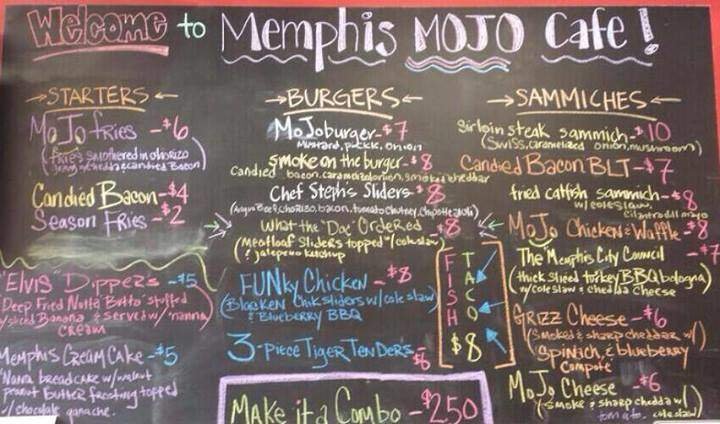 Welcome to Memphis MOJO Cafe!
→STARTERS←
MoJo fries -$6
(fries smothered in chorizo
candied Bacon)
Candied Bacon-$4
Season Fries-$2
"Elvis" Dipper's -$5
"Deep Fried Nutta Butta" stuffed
w/sliced Banana & served w/ "nanna
CREAM
Memphis Cream Cake-$5
"Nana bread cake w/walnut
peanut butter frosting topped
w/ chocolate ganache.
→BURGERS←
MoJoburger-$7
Mustard, pickle, onion
Smoke on the burger-$8
Candied bacon, caramelized onion, smoked cheddar
Chef Steph's Sliders-$8
(Angus Beef, chorizo, bacon, tomato chutney, chipotle aioli)
What the "Doc" Ordered -$8
(Meatloaf Sliders topped w/ coleslaw
& jalapeno ketchup
FUNky Chicken-$8
(Blacken Chik sliders w/cole slaw)
& Blueberry BBQ
3-piece Tiger Tenders-$6
FISH
TACO
$8
MAKE it a Combo -$250
→SAMMICHES←
Sirloin steak sammich-$10
(Swiss, caramelized onion, mushroom)
Candied Bacon BLT-$7
fried catfish sammich-$8
w/coleslaw, cilantro dill mayo
MoJo Chicken & Waffle-$8
The "Memphis City Council -$7
(thick sliced turkey BBQ bologna)
w/coleslaw & cheddar cheese
GRIZZ Cheese-$6
(Smoked & sharp cheddar w/)
Spinich, & blueberry
Compote
MoJo Cheese -$6
(Smoke & sharp chedda w/
tomato, coleslaw)